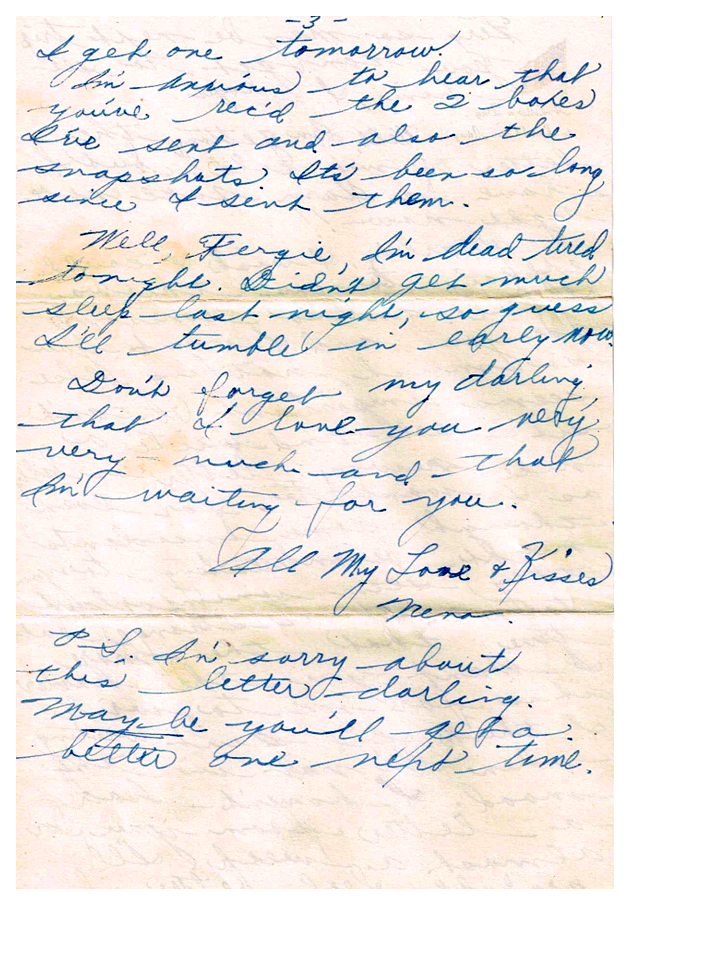 -3-
I get one tomorrow.
I'm anxious to hear that
you've rec'd the 2 boxes
I've sent and also the
snapshots. It's been so long
since I sent them.
Well, Fergie, I'm dead tired
tonight. Didn't get much
sleep last night, so guess
I'll tumble in early now.
Don't forget my darling,
that I love you very
very much and that
I'm waiting for you.
All My Love & Kisses
Nena.
P.S. I'm sorry about
this letter darling.
Maybe you'll get a
better one next time.